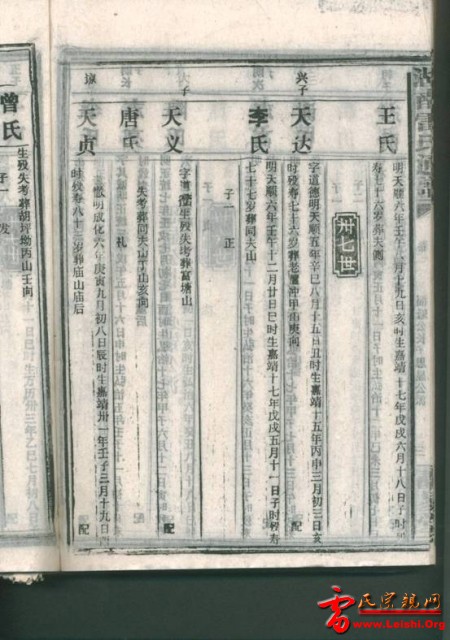 王氏
明天顺六年壬午八月十九日亥时生嘉靖十七年戊戌六月十八日子时殁
寿七十六岁葬夫侧
卅七世
兴子
天达
字道德明天顺五年辛巳八月十五日丑时生嘉靖十五年丙申三月初三日亥
时殁寿七十六岁葬老屋冲甲山庚向
配
李氏
明天顺六年壬午十二月廿日巳时生嘉靖十七年戊戌五月十一日子时殁寿
七十七岁葬同夫山
子一
正
天义
字尊
生殁失考葬富塘山
配
唐氏
失考葬同夫山
山亥向
子一
礼
天贞
明成化六年庚寅九月初八日辰时生嘉靖卅一年壬子三月十九日
时殁寿八十三岁葬庙山庙后
配
曾氏
生殁失考葬胡坪坳丙山壬向
子一
发
雷氏宗亲网
www.Leishi.Org